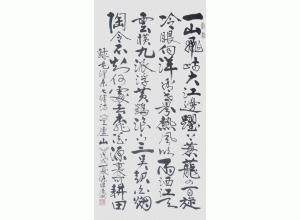 一山飞峙大江邊躍上葱蘢四百旋
冷眼向洋看世界熱風吹雨洒江天
雲横九派浮黄鶴浪下三吴起白烟
陶令不知何處去桃花源裏可耕田